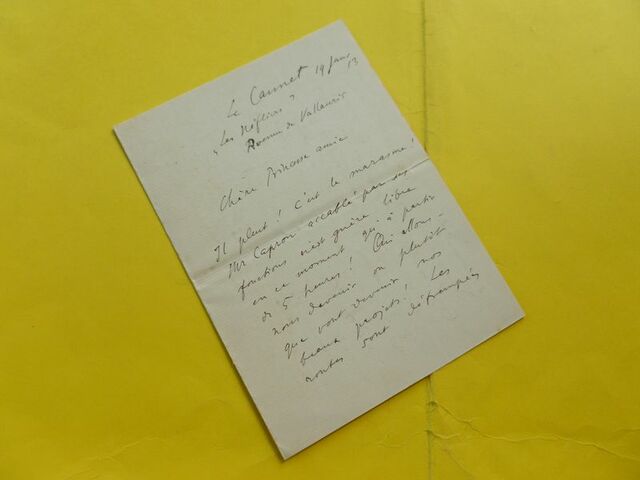 Le Cannet 19 Janv 13
"Les Néfliers"
Avenue de Vallauris
Chère Princesse amie
Il pleut! C'est le marasme!
Mr Capron accablé par ses
fonctions n'est guère libre
en ce moment qu'à partir
de 5 heures! Qu'allons-
nous devenir ou plutôt
que vont devenir nos
beaux projets! Les
routes sont détrempées